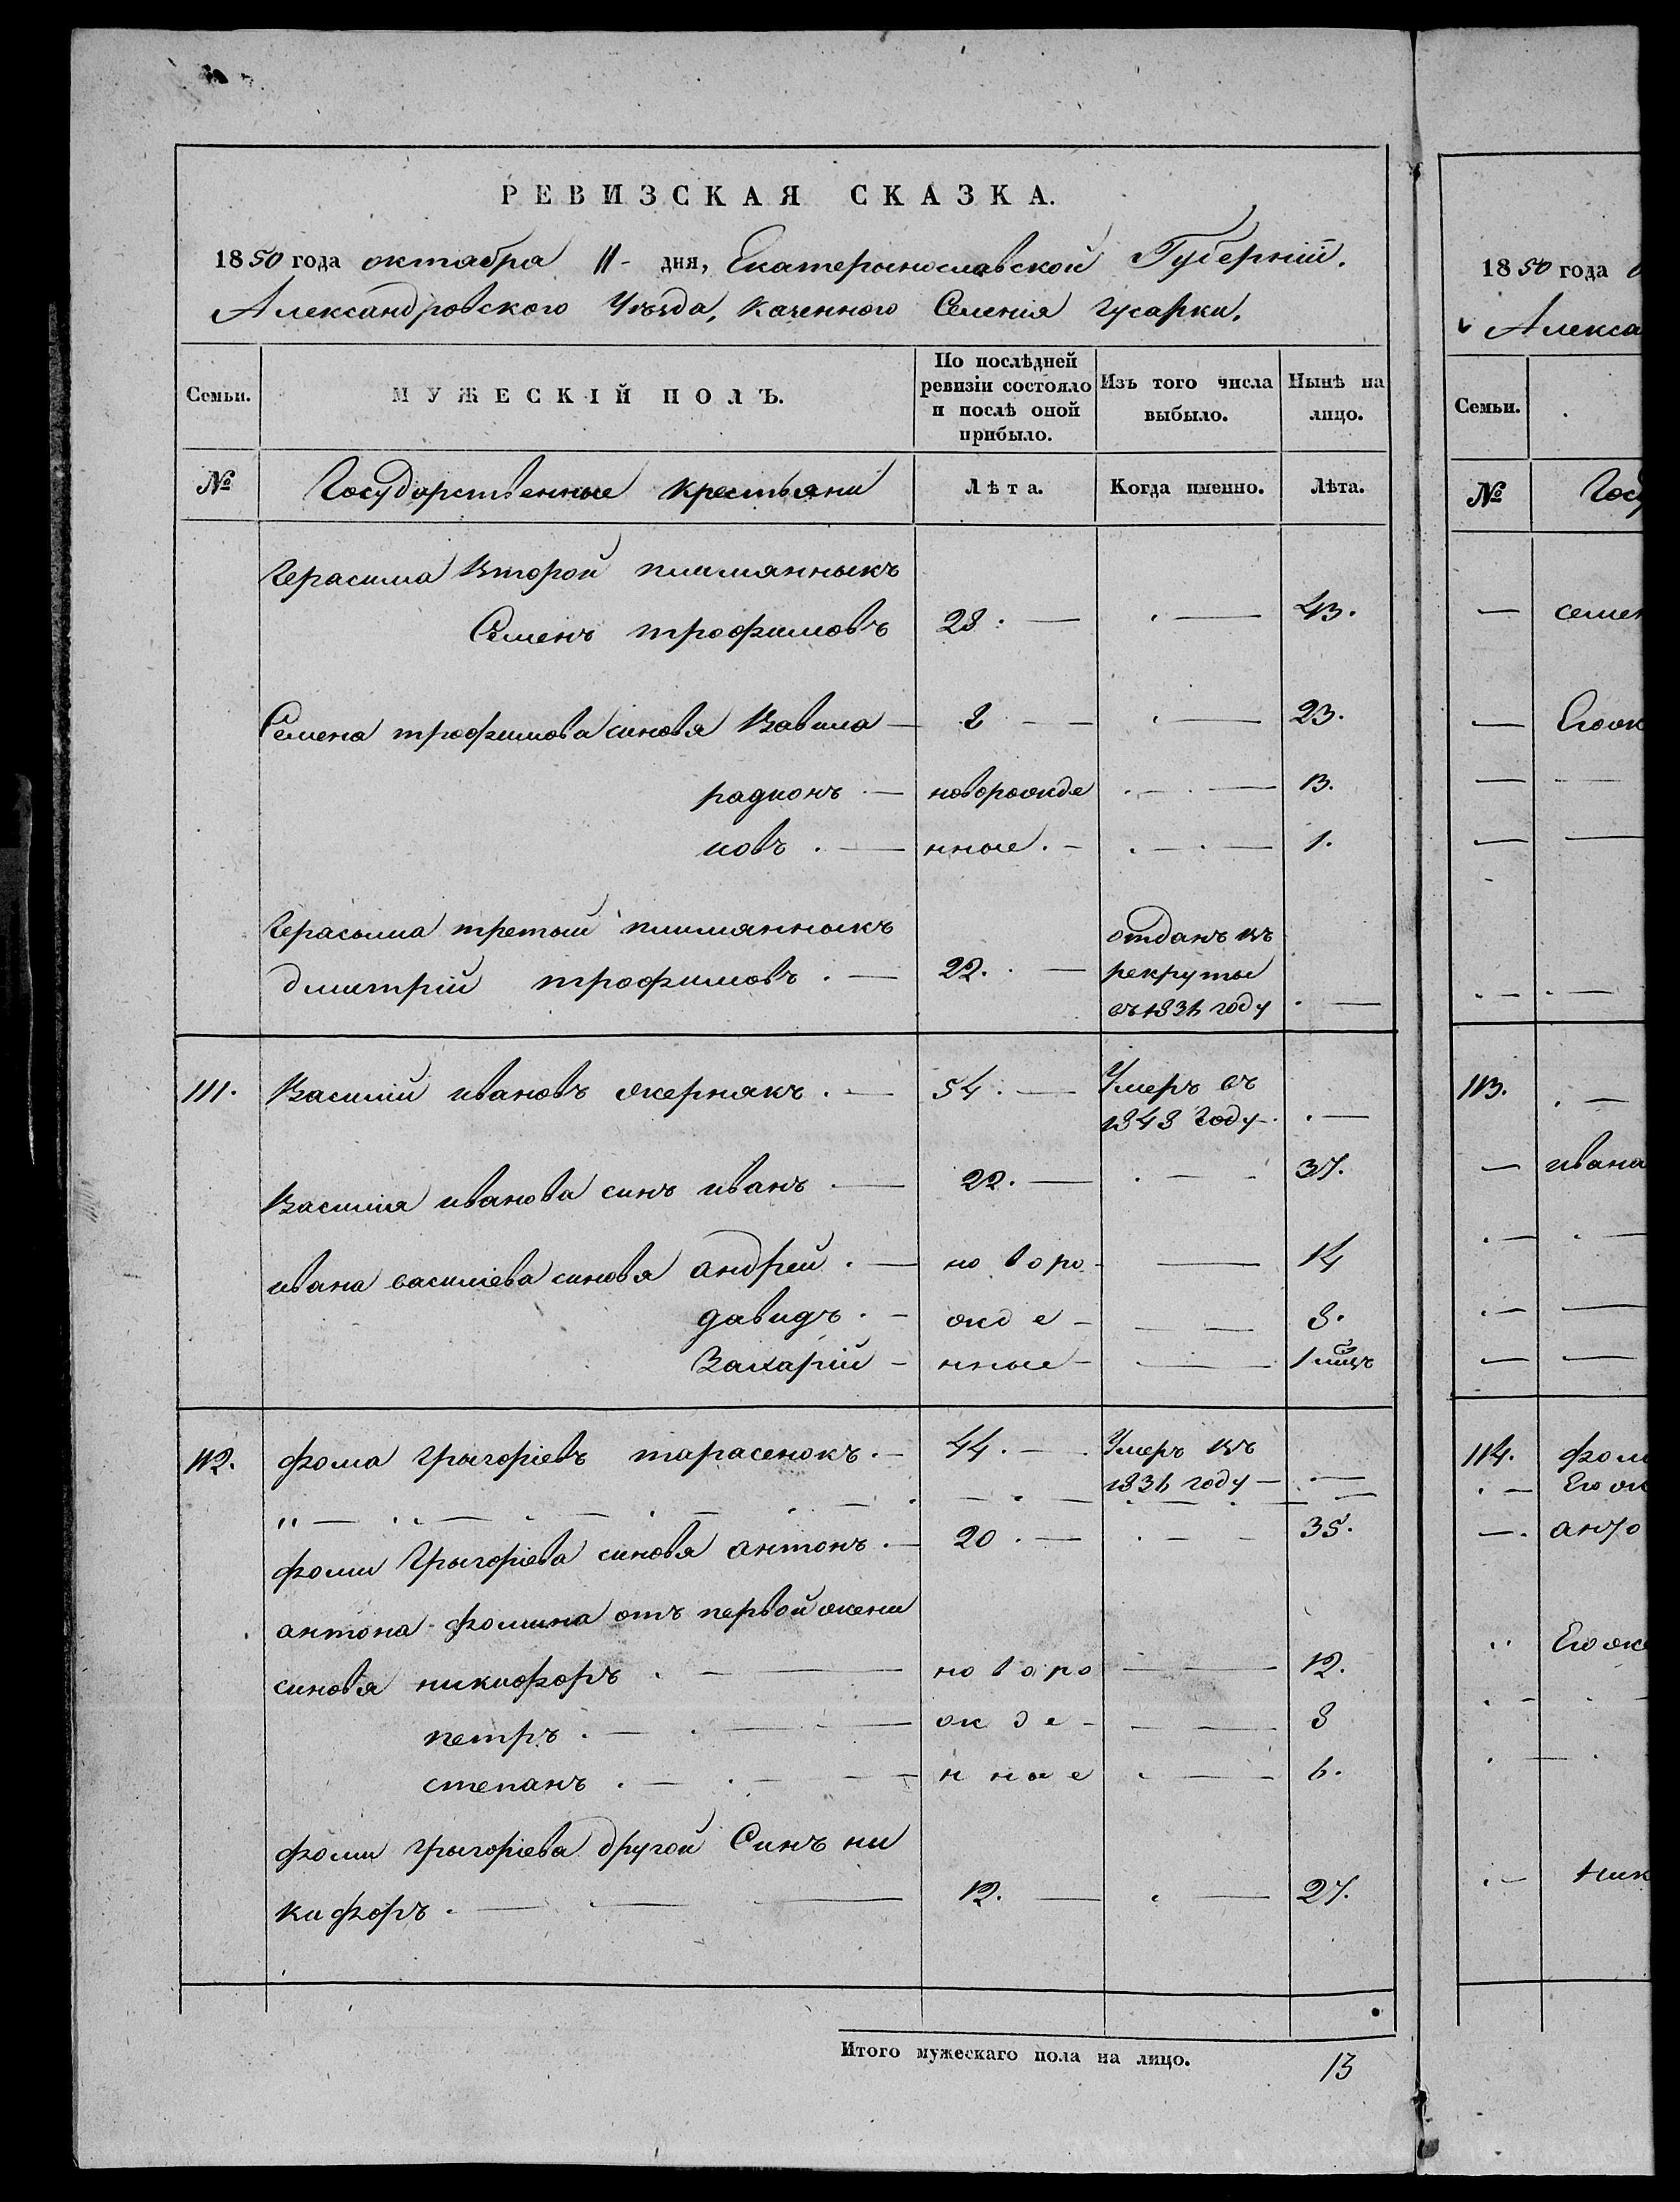 РЕВИЗСКАЯ СКАЗКА.
1850 года октабра 11- дня, Екатерынославской Губерніи.
Александровского Уѣзда, Казенного Селенія Гусарки.
Семьи.
МУЖЕСКІЙ ПОЛЪ.
По послѣдней ревизіи состояло и послѣ оной прибыло.
Изъ того числа выбыло.
Нынѣ на лицо.
№ Государственные крестьяни Лѣта. Когда именно. Лѣта.
Герасима Второй плимянныкъ
Семенъ трофимовъ 28. — . — 43.
Семена трофимова синовя Вавила — 8 — — . — 23.
радионъ . — новорожде . — . — 13.
иовъ . — нные . — . — . — 1.
Герасыма третый плимянныкъ отданъ въ
дмитрій трофимовъ . — 22. . — рекруты
въ 1836 году . —
111. Василій ивановъ жернякъ . — 54 . — Умеръ въ
1848 Году . . —
Василія иванова синъ иванъ . — 22. — . — - 37.
ивана василіева синовя андрей . — новоро- — 14
давидъ . — жде - — — 8.
Захарій - нные - — 1 мцъ
112. фома грыгоріевъ тарасенокъ . — 44 . — . Умеръ въ
1836 году — . —
фоми Грыгоріева синовя антонъ . — 20 . — . — - 35.
антона фомина отъ первой жени
синовя никифоръ . — — новоро — 12.
петръ . — . — . — жде - — — 8
степанъ . — . — — нные . — 6.
фоми грыгоріева другой Синъ ни
кифоръ . — . — — 12. — . — 27.
Итого мужескаго пола на лицо. 13
1850 года
Алекса
Семьи.
№ Госу
— семен
— Еюж
113. . —
— ивана
114. фом
. — Еюж
—. анто
" Еюже
. — ник